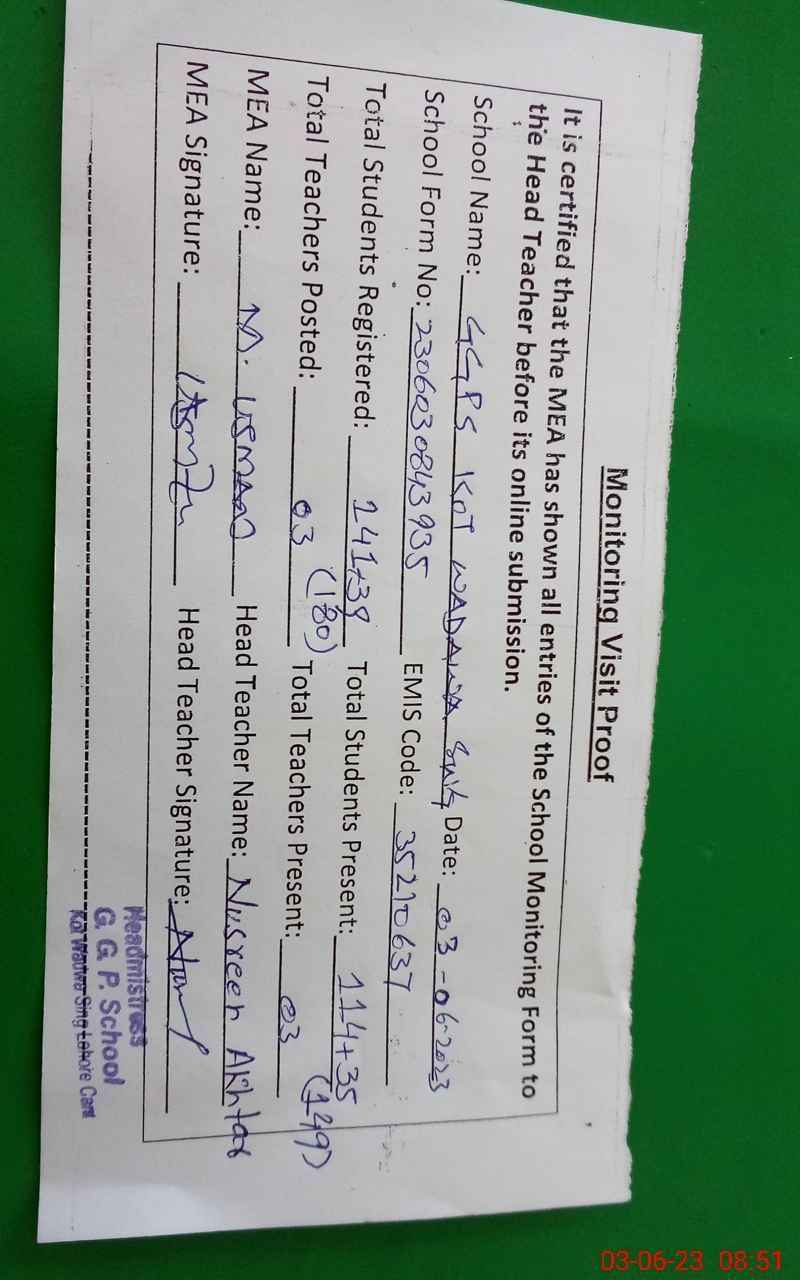 Monitoring Visit Proof
It is certified that the MEA has shown all entries of the School Monitoring Form to
the Head Teacher before its online submission.
School Name: GGPS KOT WADAWA Date: 03-06-2023
School Form No: 2306030843935 EMIS Code: 35210637
Total Students Registered: 141+39 (180) Total Students Present: 114+35 (149)
Total Teachers Posted: 03 Total Teachers Present: 03
MEA Name: M. USMAN Head Teacher Name: Nusreen Akhtar
MEA Signature: Head Teacher Signature:
Headmistress
G. G. P. School
Kot Sing Lahore Cantt
03-06-23 08:51